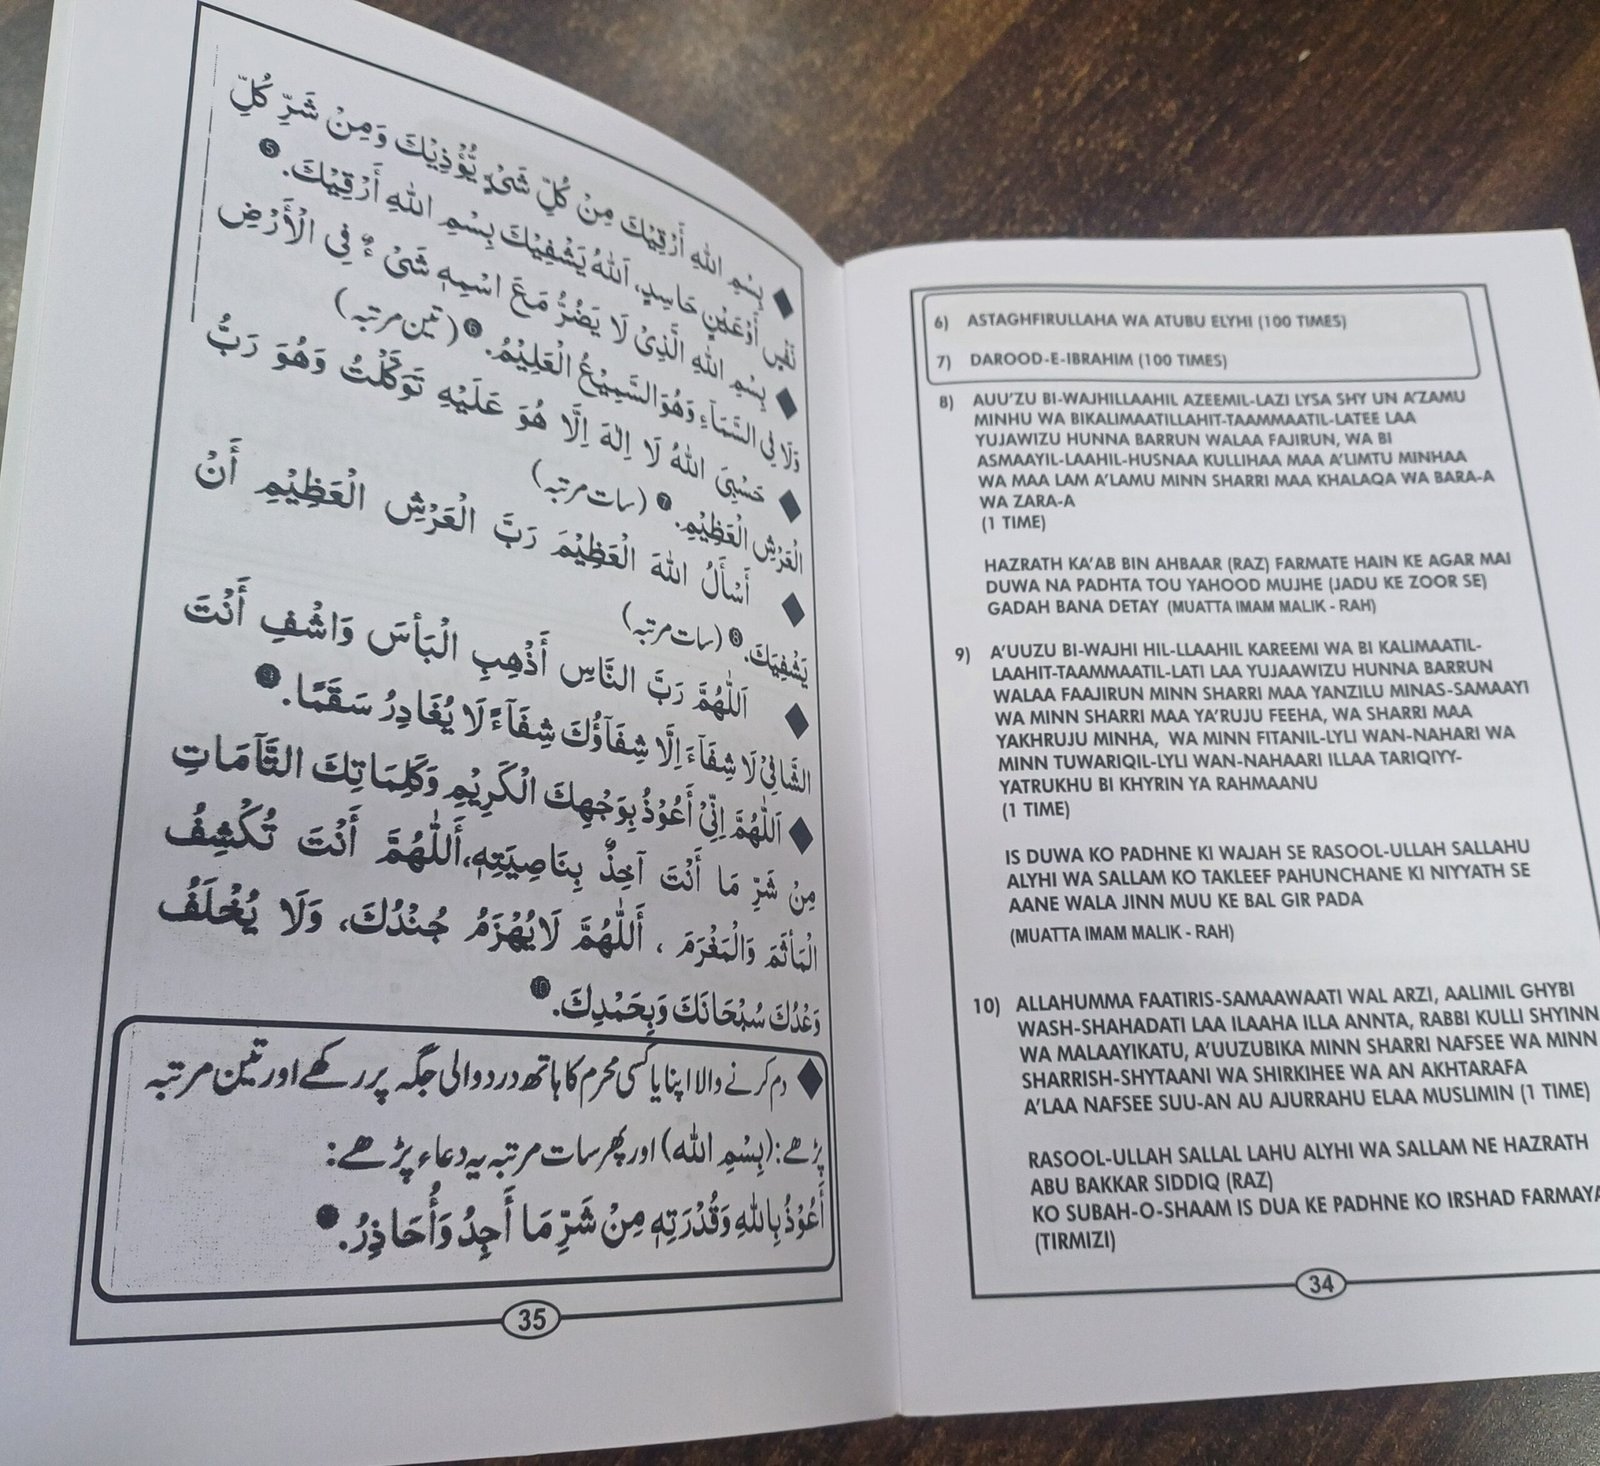 6) ASTAGHFIRULLAHA WA ATUBU ELYHI (100 TIMES)
7) DAROOD-E-IBRAHIM (100 TIMES)
8) AUU'ZU BI-WAJHILLAAHIL AZEEMIL-LAZI LYSA SHY UN A'ZAMU
MINHU WA BIKALIMAATILLAHIT-TAAMMAATIL-LATEE LAA
YUJAWIZU HUNNA BARRUN WALAA FAJIRUN, WA BI
ASMAAYIL-LAAHIL-HUSNAA KULLIHAA MAA A'LIMTU MINHAA
WA MAA LAM A'LAMU MINN SHARRI MAA KHALAQA WA BARA-A
WA ZARA-A
(1 TIME)
HAZRATH KA'AB BIN AHBAAR (RAZ) FARMATE HAIN KE AGAR MAI
DUWA NA PADHTA TOU YAHOOD MUJHE (JADU KE ZOOR SE)
GADAH BANA DETAY (MUATTA IMAM MALIK - RAH)
9) A'UUZU BI-WAJHI HIL-LLAAHIL KAREEMI WA BI KALIMAATIL-
LAAHIT-TAAMMAATIL-LATI LAA YUJAAWIZU HUNNA BARRUN
WALAA FAAJIRUN MINN SHARRI MAA YANZILU MINAS-SAMAAYI
WA MINN SHARRI MAA YA'RUJU FEEHA, WA SHARRI MAA
YAKHRUJU MINHA, WA MINN FITANIL-LYLI WAN-NAHARI WA
MINN TUWARIQIL-LYLI WAN-NAHAARI ILLAA TARIQIYY-
YATRUKHU BI KHYRIN YA RAHMAANU
(1 TIME)
IS DUWA KO PADHNE KI WAJAH SE RASOOL-ULLAH SALLAHU
ALYHI WA SALLAM KO TAKLEEF PAHUNCHANE KI NIYYATH SE
AANE WALA JINN MUU KE BAL GIR PADA
(MUATTA IMAM MALIK - RAH)
10) ALLAHUMMA FAATIRIS-SAMAAWAATI WAL ARZI, AALIMIL GHYBI
WASH-SHAHADATI LAA ILAAHA ILLA ANNTA, RABBI KULLI SHYINN
WA MALAAYIKATU, A'UUZUBIKA MINN SHARRI NAFSEE WA MINN
SHARRISH-SHYTAANI WA SHIRKIHEE WA AN AKHTARAFA
A'LAA NAFSEE SUU-AN AU AJURRAHU ELAA MUSLIMIN (1 TIME)
RASOOL-ULLAH SALLAL LAHU ALYHI WA SALLAM NE HAZRATH
ABU BAKKAR SIDDIQ (RAZ)
KO SUBAH-O-SHAAM IS DUA KE PADHNE KO IRSHAD FARMAYA
(TIRMIZI)
34
◆ بِسْمِ اللهِ أَرْقِيْكَ مِنْ كُلِّ شَيْءٍ يُّؤْذِيْكَ وَمِنْ شَرِّ كُلِّ
نَفْسٍ أَوْعَيْنٍ حَاسِدٍ، اَللهُ يَشْفِيْكَ بِسْمِ اللهِ أَرْقِيْكَ. ❺
◆ بِسْمِ اللهِ الَّذِىْ لَا يَضُرُّ مَعَ اسْمِهٖ شَىْءٌ فِي الْأَرْضِ
وَلَا فِى السَّمَآءِ وَهُوَ السَّمِيْعُ الْعَلِيْمُ. ❻ (تین مرتبہ)
◆ حَسْبِىَ اللهُ لَا اِلٰهَ اِلَّا هُوَ عَلَيْهِ تَوَكَّلْتُ وَهُوَ رَبُّ
الْعَرْشِ الْعَظِيْمِ. ❼ (سات مرتبہ)
◆ أَسْأَلُ اللهَ الْعَظِيْمَ رَبَّ الْعَرْشِ الْعَظِيْمِ أَنْ
يَشْفِيَكَ. ❽ (سات مرتبہ)
◆ اَللّٰهُمَّ رَبَّ النَّاسِ أَذْهِبِ الْبَأْسَ وَاشْفِ أَنْتَ
الشَّافِىْ لَا شِفَآءَ اِلَّا شِفَآؤُكَ شِفَآءً لَا يُغَادِرُ سَقَمًا.
◆ اَللّٰهُمَّ اِنِّىْ أَعُوْذُ بِوَجْهِكَ الْكَرِيْمِ وَكَلِمَاتِكَ التَّآمَاتِ
مِنْ شَرِّ مَا أَنْتَ آخِذٌ بِنَاصِيَتِهٖ، أَللّٰهُمَّ أَنْتَ تُكْشِفُ
الْمَأْثَمَ وَالْمَغْرَمَ ، أَللّٰهُمَّ لَا يُهْزَمُ جُنْدُكَ، وَلَا يُخْلَفُ
وَعْدُكَ سُبْحَانَكَ وَبِحَمْدِكَ. ❿
◆ دم کرنے والا اپنا یا کسی محرم کا ہاتھ درد والی جگہ پر رکھے اور تین مرتبہ
پڑھے: (بِسْمِ الله) اور پھر سات مرتبہ یہ دعاء پڑھے:
أَعُوْذُ بِاللهِ وَقُدْرَتِهٖ مِنْ شَرِّ مَا أَجِدُ وَأُحَاذِرُ.
35